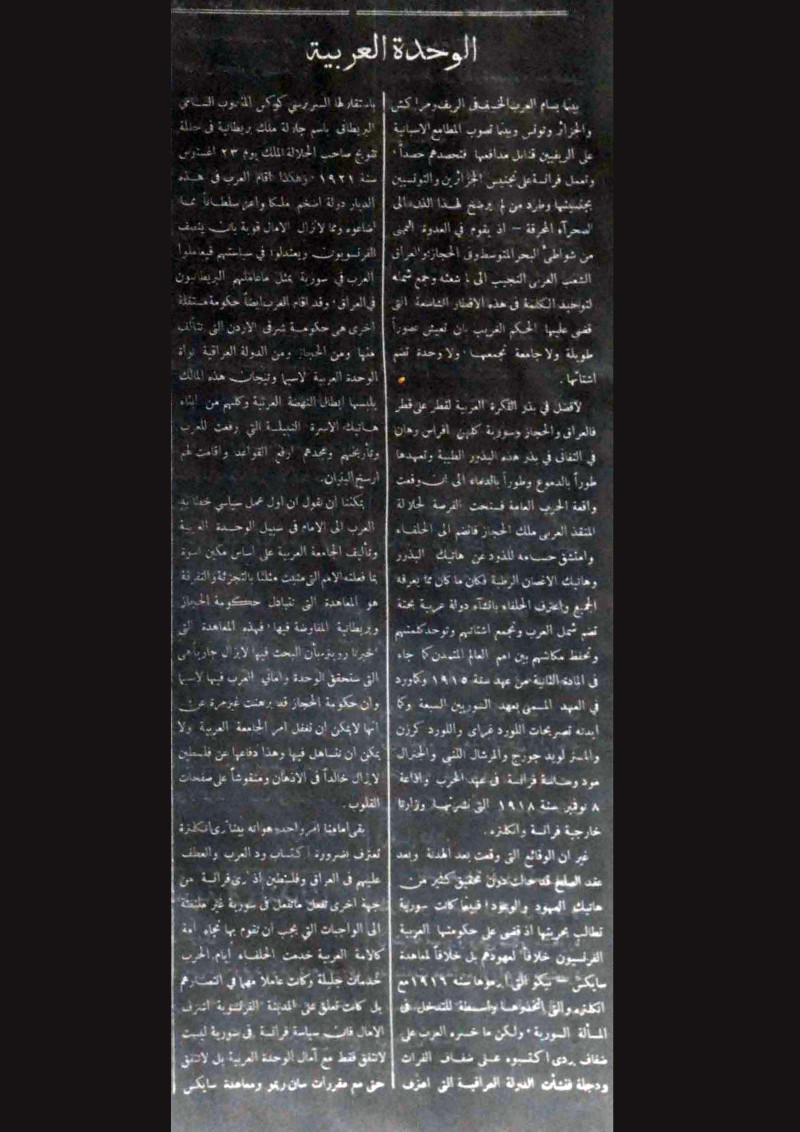 الوحدة العربية
بينما يسام العرب الخسف في الريف ومراكش
والجزائر وتونس وبينما تصوب المطامع الاسبانية
على الريفيين قنابل مدافعها فتحصدهم حصداً
وتعمل فرانسة على تجنيس الجزائريين والتونسيين
بجنسيتها وطرد من لم يرضخ لهذا الى
الصحرآء المحرقة – اذ يقوم في العدوة
من شواطئ البحر المتوسط وفي الحجاز والعراق
الشعب العربي النجيب الى لم شعثه وجمع شمله
لتوحيد الكلمة في هذه الاقطار الشاسعة التي
قضى عليها الحكم الغريب بان تعيش عصوراً
طويلة ولا جامعة تجمعها ولا وحدة تضم
اشتاتها .
لافضل في بذر الفكرة العربية لقطر على قطر
فالعراق والحجاز وسورية كلهن افراس رهان
في التفاني في بذر هذه البذور الطيبة وتعهدها
طوراً بالدموع وطوراً بالدماء الى ان وقعت
واقعة الحرب العامة فسنحت الفرصة لجلالة
المنقذ العربي ملك الحجاز فانضم الى الحلفاء
وامتشق حسامه للذود عن هاتيك البذور
وهاتيك الاغصان الرطبة فكان ما كان مما يعرفه
الجميع واعترف الحلفاء بانشآء دولة عربية بحتة
تضم شمل العرب وتجمع اشتاتهم وتوحد كلمتهم
وتحفظ مكانتهم بين امم العالم المتمدن كما جاء
في المادة الثانية من عهد سنة ١٩١٥ وكما ورد
في العهد المسمى بعهد السوريين السبعة وكما
ايدته تصريحات اللورد غراي واللورد كرزن
والمستر لويد جورج والمرشال اللنبي والجنرال
مود وساسة فرانسة في عهد الحرب واذاعة
٨ نوفبر سنة ١٩١٨ التي نشرتها وزارتا
خارجية فرانسة وانكلتره.
غير ان الوقائع التي وقعت بعد الهدنة وبعد
عقد الصلح قد حالت دون تحقيق كثير من
هاتيك العهود والوعود فبينما كانت سورية
تطالب بحريتها اذ قضى على حكومتها العربية
الفرنسيون خلافاً لعهودهم بل خلافاً لمعاهدة
سايكس – بيكو التي ابرموها سنه ١٩١٦ مع
انكلتره والتي اتخذوها واسطة للتدخل في
المسألة السورية ولكن ما خسره العرب على
ضفاف بردى اكتسبوه على ضفاف الفرات
ودجلة فنشأت الدولة العراقية التي اعترف
باستقلالها السر برسي كوكس المندوب السامي
البريطاني باسم جلالة ملك بريطانية في حفلة
تتويج صاحب الجلالة الملك يوم ٢٣ اغسطس
سنة ١٩٢١ وهكذا اقام العرب في هذه
الديار دولة اضخم ملكا واعز سلطاناً مما
اضاعوه ومما لاتزال الامال قوية بان ينصف
الفرنسويون ويعتدلوا في سياستهم فيعاملوا
العرب في سورية بمثل ماعاملهم البريطانيون
في العراق وقد اقام العرب ايضاً حكومة مستقلة
اخرى هي حكومة شرقي الاردن التي تتألف
منها ومن الحجاز ومن الدولة العراقية نواة
الوحدة العربية لاسيما وتيجان هذه الممالك
يلبسها ابطال النهضة العربية وكلهم من ابناء
هاتيك الاسرة النبيلة التي رفعت للعرب
وتأريخهم ومجدهم ارفع القواعد واقامت لهم
ارسخ البنيان.
يمكننا ان نقول ان اول عمل سياسي خطا به
العرب الى الامام في سبيل الوحدة العربية
وتأليف الجامعة العربية على اساس مكين اسوة
بما فعلته الامم التي منيت مثلنا بالتجزئة والتفرقة
هو المعاهدة التي تتبادل حكومة الحجاز
وبريطانية المفاوضة فيها فهذه المعاهدة التي
اخبرنا روتر بأن البحث فيها لايزال جارياً هي
التي ستحقق الوحدة واماني العرب فيها لاسيما
وان حكومة الحجاز قد برهنت غير مرة عن
انها لايمكن ان تغفل امر الجامعة العربية ولا
يمكن ان تتساهل فيها وهذا دفاعها عن فلسطين
لايزال خالداً في الاذهان ومنقوشاً على صفحات
القلوب .
بقي امامنا امر واحد هو انه بينا نرى انكلترة
تعترف بضرورة اكتساب ود العرب والعطف
عليهم في العراق وفلسطين اذ نرى فرانسة من
جهة اخرى تفعل ماتفعل في سورية غير ملتفتة
الى الواجبات التي يجب ان تقوم بها تجاه امة
كالامة العربية خدمت الحلفاء أيام الحرب
خدمات جليلة وكانت عاملا مهما في انتصارهم
بل كانت تعلق على المدنية الفرنسوية اشرف
الامال فان سياسة فرانسة في سورية ليست
لاتتفق فقط مع آمال الوحدة العربية بل لاتتفق
حتى مع مقررات سان ريمو ومعاهدة سايكس